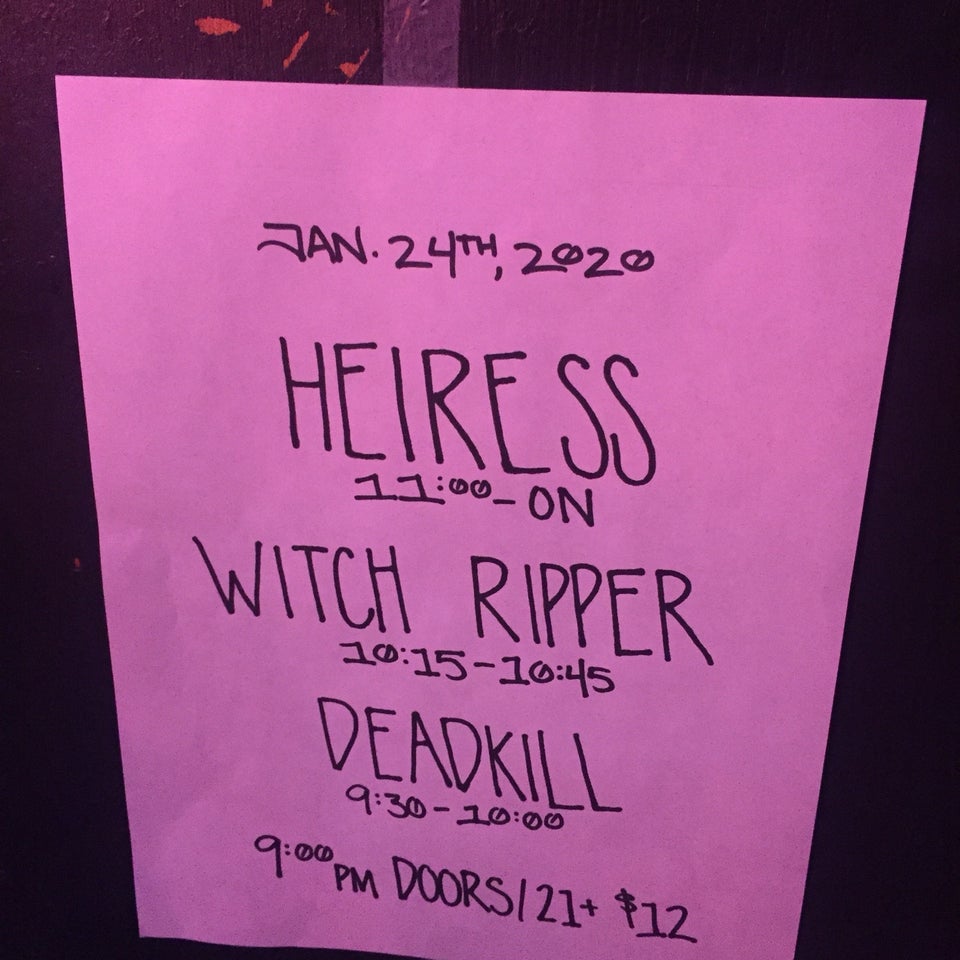 JAN. 24TH, 2020
HEIRESS
11:00-ON
WITCH RIPPER
10:15-10:45
DEADKILL
9:30-10:00
9:00PM DOORS/21+ $12